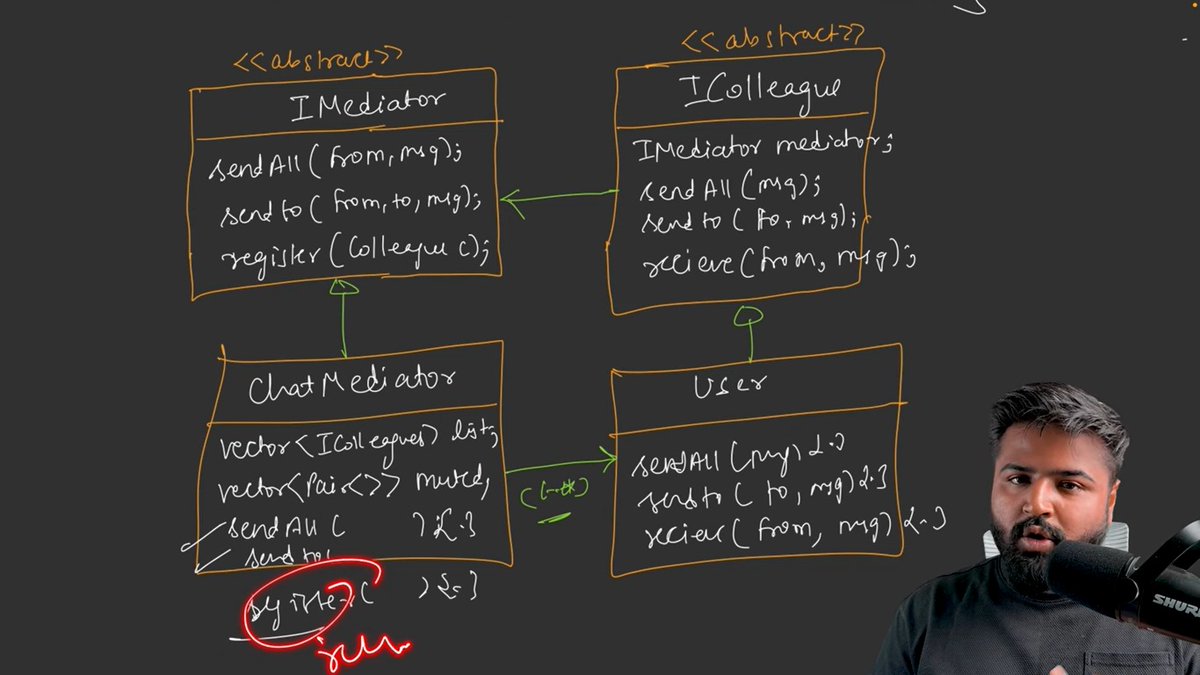 <<abstract>>
IMediator
sendAll(from, msg);
sendto(from, to, msg);
register(Colleague c);
<<abstract>>
IColleague
IMediator mediator;
sendAll(msg);
sendto(to, msg);
recieve(from, msg);
ChatMediator
vector<IColleagues> list;
vector<Pair<>> muted;
sendAll( ){..}
sendto(
register( ){..}
User
sendAll(msg){..}
sendto(to, msg){..}
recieve(from, msg){..}
SHURE